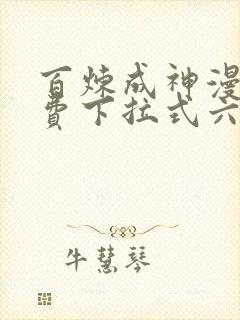 百炼成神漫
费下拉式六
牛慧琴